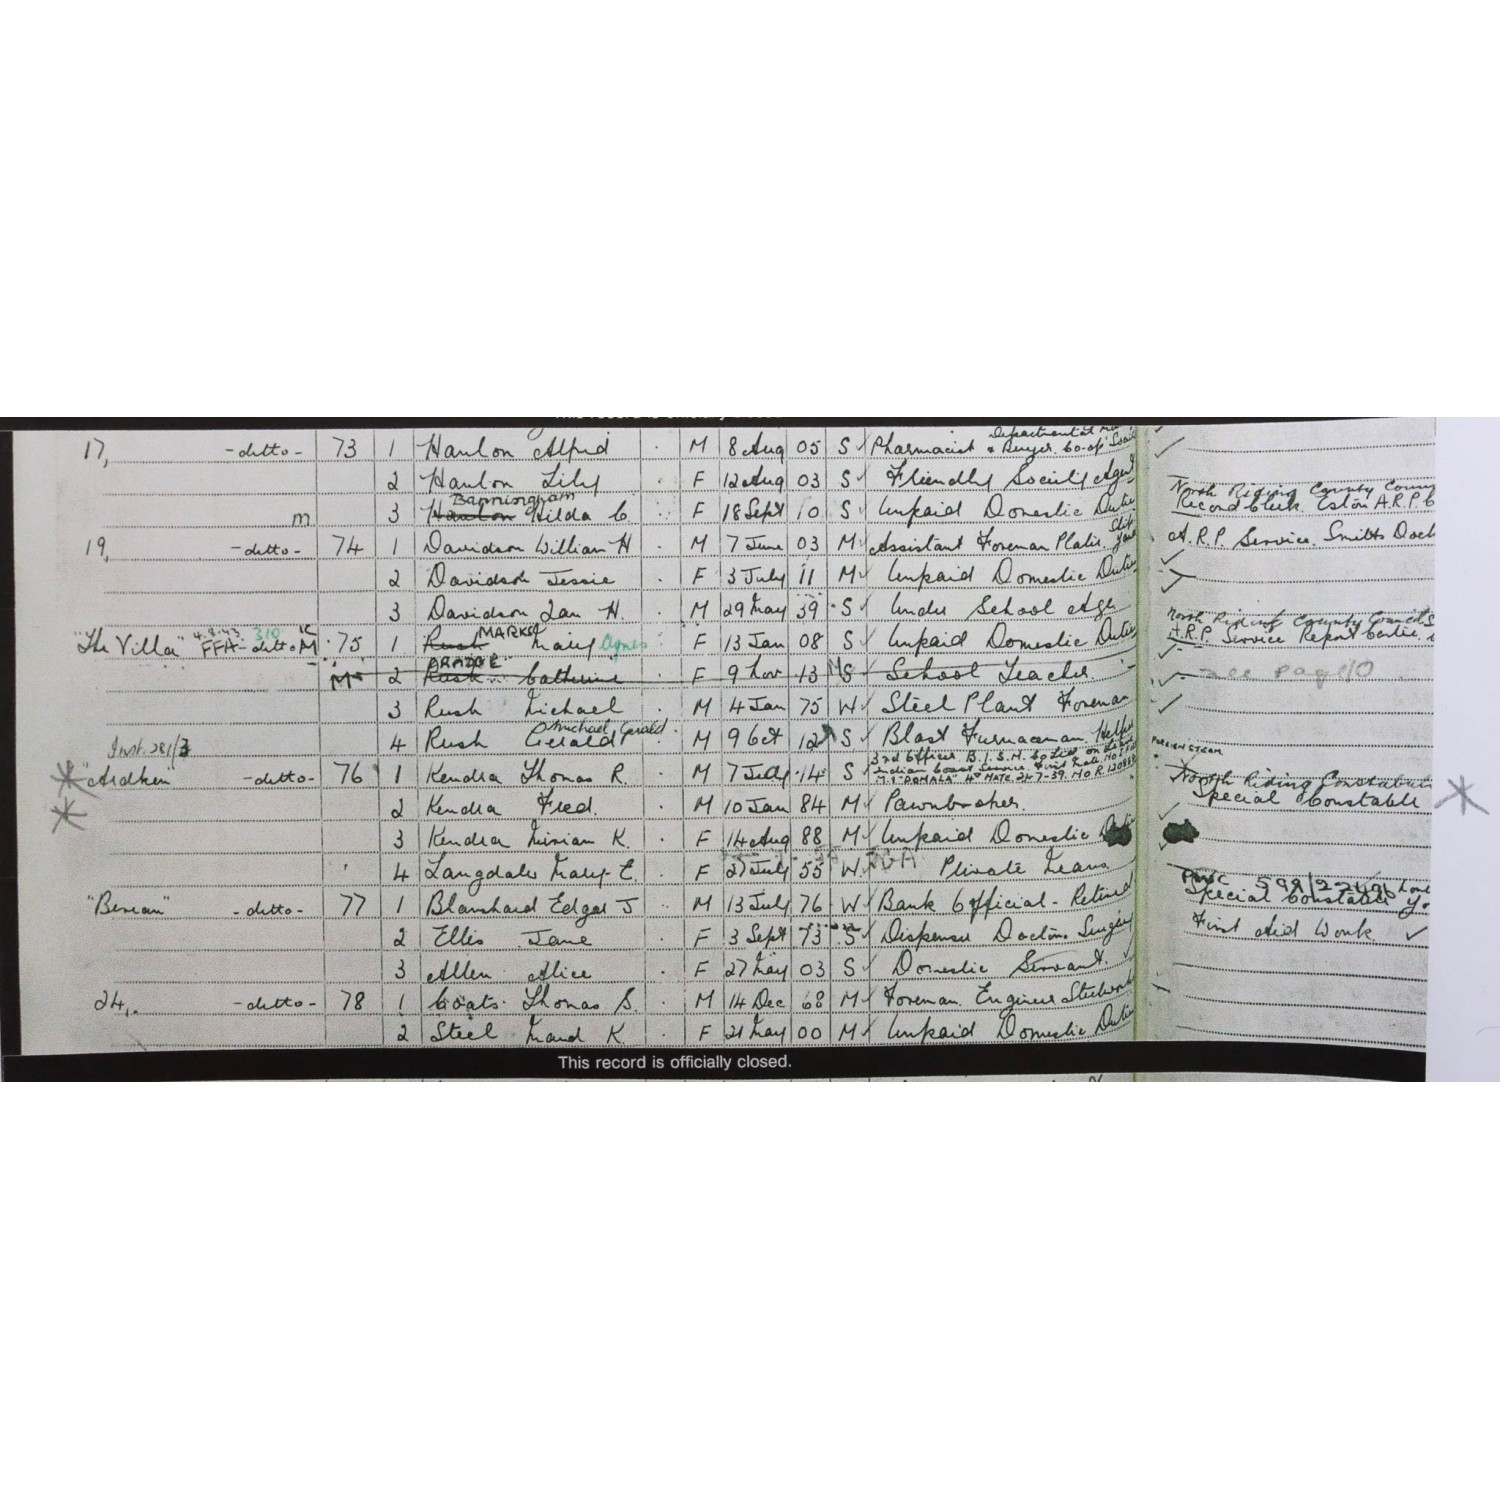 17, -ditto- 73 1 Hanlon Alfred . M 8 Aug 05 S Pharmacist & Buyer. Co-op Departmental
2 Hanlon Lily F 12 Aug 03 S Friendly Society Agent
Banningham
m 3 Hanlon Hilda C. F 18 Sept 10 S Unpaid Domestic Duties North Riding County Coun
Record Clerk. Eston A.R.P.
19, -ditto- 74 1 Davidson William H M 7 June 03 M Assistant Foreman Plater. Ship Yard A.R.P. Service. Smiths Dock
2 Davidson Jessie . F 3 July 11 M Unpaid Domestic Duties
3 Davidson Ian H. . M 29 May 39 S Under School Age
"The Villa" 4.8.43 FFA 310 -ditto- M 75 1 Rush MARKS Mary Agnes F 13 Jan 08 S Unpaid Domestic Duties North Riding County Councils
A.R.P. Service Report Centre.
M 2 Rush Catherine F 9 Nov 13 S School Teacher. see page 10
3 Rush Michael M 4 Jan 75 W Steel Plant Foreman
4 Rush Gerald Michael Gerald . M 9 Oct 12 S Blast Furnaceman. Helper
Inst. 281/3
"Ardken" -ditto- 76 1 Kendra Thomas R. M 7 July 14 S 3rd Officer B.I.S.N. Co Ltd on
Indian Coast Service. First Mate No
M.S "DOMALA" 4th MATE. 24-7-39. No R.
FOREIGN STEAM
North Riding Constabulary
Special Constable
2 Kendra Fred. M 10 Jan 84 M Pawnbroker.
3 Kendra Miriam K. F 14 Aug 88 M Unpaid Domestic
4 Langdale Mary E. F 27 July 55 W Private Means
"Berean" -ditto- 77 1 Blanshard Edgar J M 13 July 76 W Bank Official - Retired Special Constable
2 Ellis Jane F 3 Sept 73 S Dispenser Doctors Surgery First Aid Work.
3 Allen Alice . F 27 May 03 S Domestic Servant.
24, -ditto- 78 1 Coats Thomas S. . M 14 Dec 68 M Foreman. Engineer Steelworks
2 Steel Maud K. F 21 May 00 M Unpaid Domestic Duties
This record is officially closed.